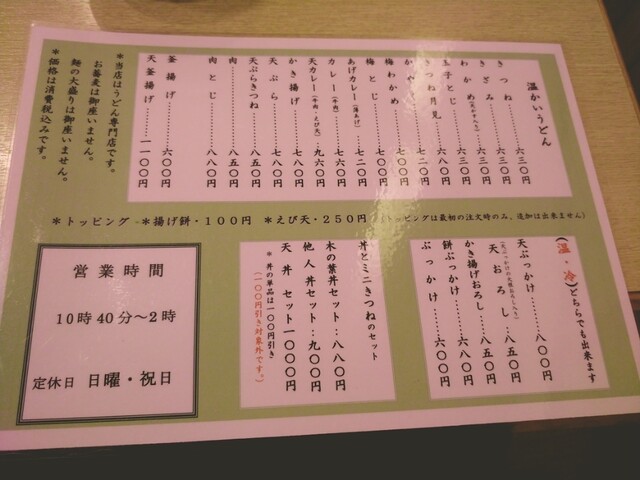 温かいうどん
きつね‥‥‥六三〇円
きざみ‥‥‥六三〇円
わかめ‥‥‥六三〇円
玉子とじ‥‥‥六八〇円
きつね月見‥‥‥七二〇円
梅わかめ‥‥‥七〇〇円
梅とじ‥‥‥七五〇円
あげカレー(薄あげ)‥‥‥七二〇円
カレー(牛肉)‥‥‥七六〇円
天カレー(牛肉・えび天)‥‥‥九六〇円
かき揚げ‥‥‥七八〇円
天ぷら‥‥‥七八〇円
天ぷらきつね‥‥‥八五〇円
肉‥‥‥八五〇円
肉とじ‥‥‥八八〇円
釜揚げ‥‥‥六〇〇円
天釜揚げ‥‥‥一一〇〇円
＊当店はうどん専門店です。
お蕎麦は御座いません。
麺の大盛りは御座いません。
＊価格は消費税込みです。
＊トッピング ＊揚げ餅・100円 ＊えび天・250円 (トッピングは最初の注文時のみ、追加は出来ません)
(温・冷)どちらでも出来ます
天ぶっかけ‥‥‥八〇〇円
天おろし‥‥‥八五〇円
かき揚げおろし‥‥‥八五〇円
餅ぶっかけ‥‥‥六八〇円
ぶっかけ‥‥‥六〇〇円
丼とミニきつねのセット
木の葉丼セット‥八八〇円
他人丼セット‥九〇〇円
天丼セット一〇〇〇円
＊丼の単品は一〇〇円引き
(一〇〇円引き対象外です。)
営業時間
10時40分～2時
定休日 日曜・祝日